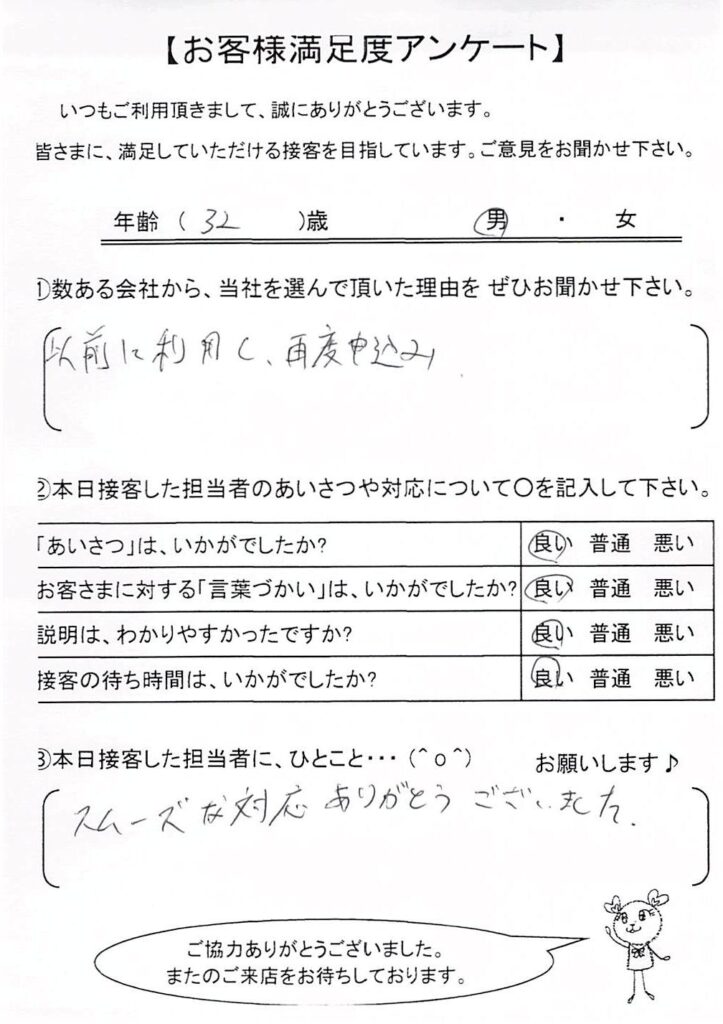 【お客様満足度アンケート】
いつもご利用頂きまして、誠にありがとうございます。
皆さまに、満足していただける接客を目指しています。ご意見をお聞かせ下さい。
年齢 ( 32 )歳 男 ・ 女
①数ある会社から、当社を選んで頂いた理由を ぜひお聞かせ下さい。
以前に利用し、再度申込み
②本日接客した担当者のあいさつや対応について〇を記入して下さい。
「あいさつ」は、いかがでしたか? 良い 普通 悪い
お客さまに対する「言葉づかい」は、いかがでしたか? 良い 普通 悪い
説明は、わかりやすかったですか? 良い 普通 悪い
接客の待ち時間は、いかがでしたか? 良い 普通 悪い
③本日接客した担当者に、ひとこと・・・(^o^) お願いします♪
スムーズな対応ありがとうございました.
ご協力ありがとうございました。
またのご来店をお待ちしております。